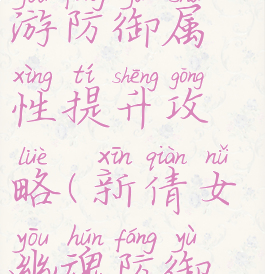 游防御属
xìng tí shēng gōng
性提升攻
lüè xīn qiàn nǚ
略(新倩女
yōu hún fáng yù
幽魂防御